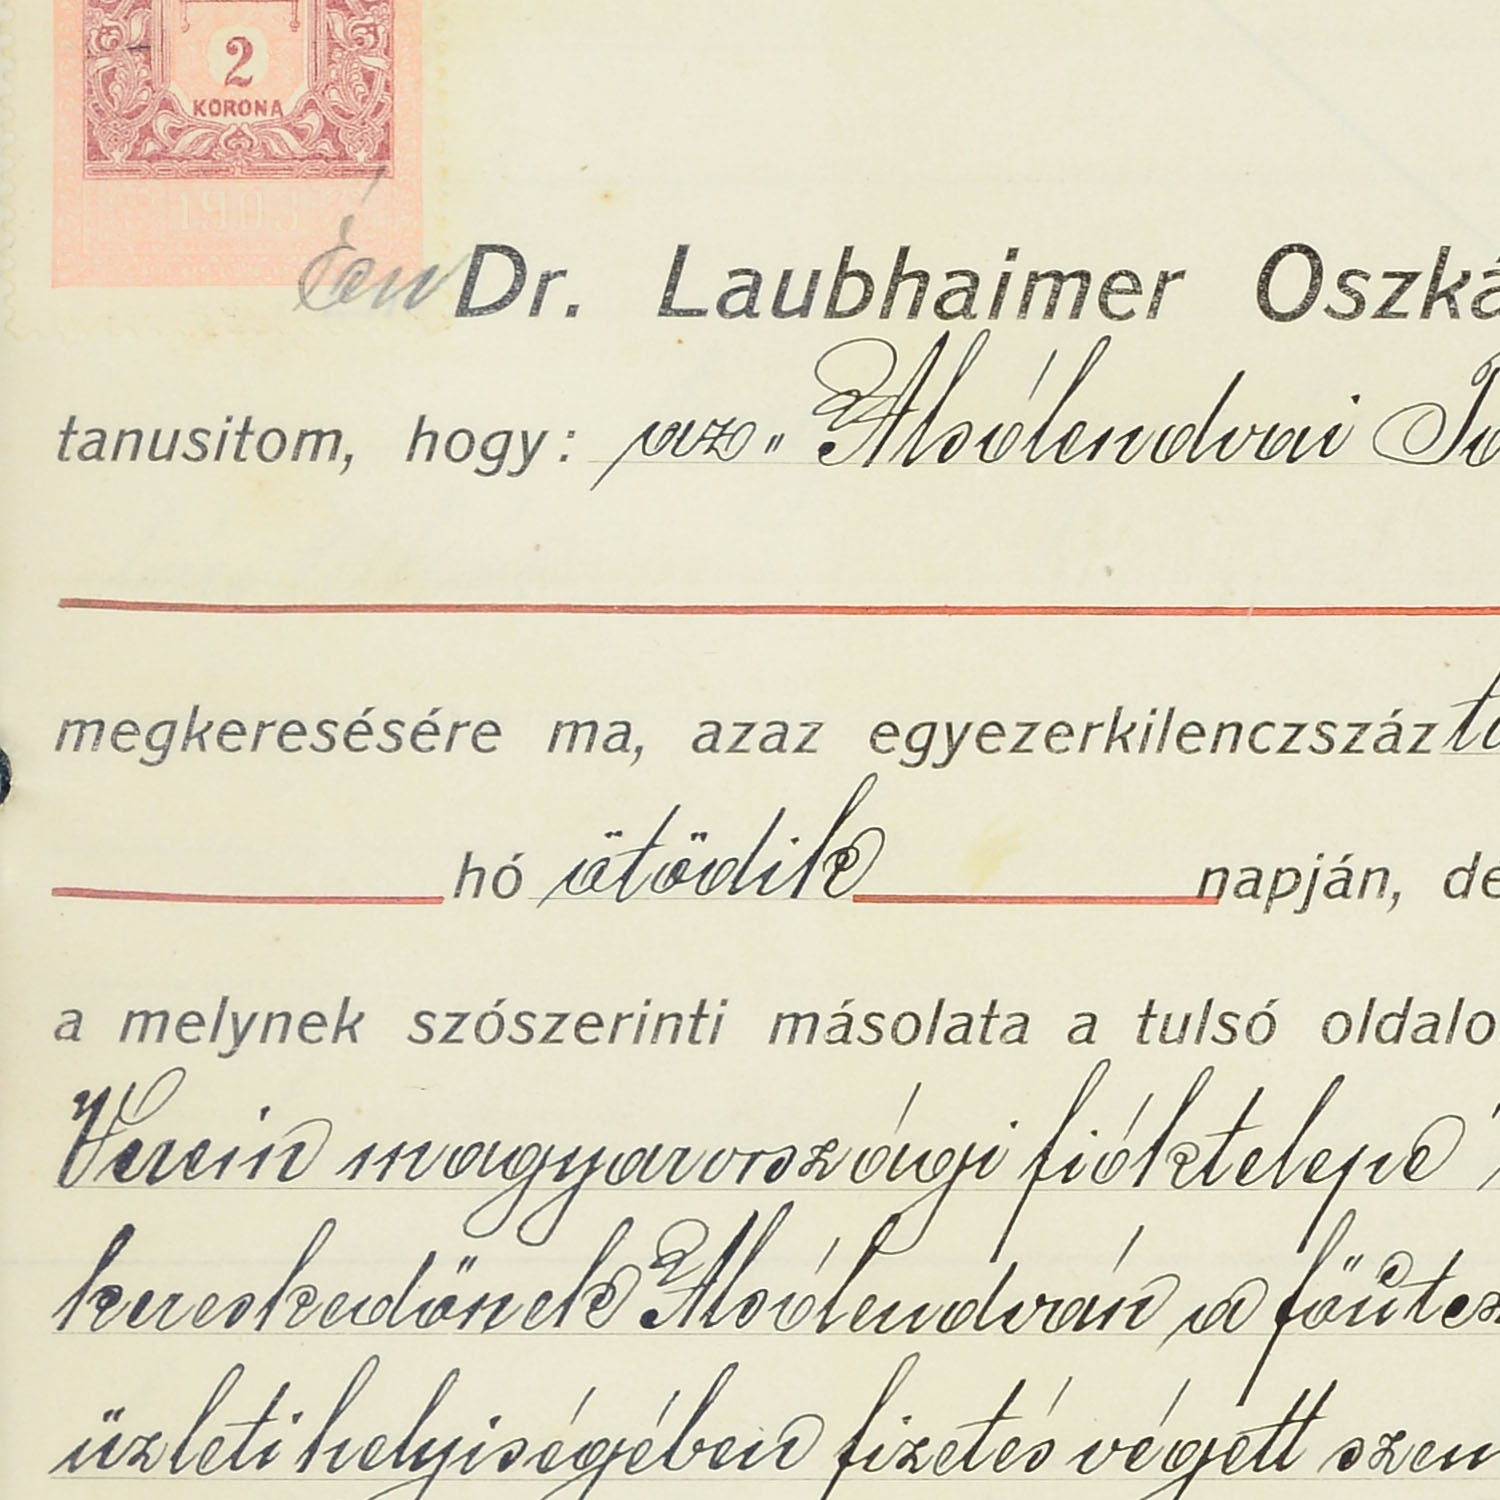 2
KORONA
1903
Én Dr. Laubhaimer Oszká
tanusitom, hogy: az „Alsólendvai
megkeresésére ma, azaz egyezerkilenczszáz
hó ötödik napján, de
a melynek szószerinti másolata a tulsó oldalo
Verein magyarországi fióktelepe"
kereskedőnek Alsólendván a főútcz
üzleti helyiségében fizetés végett szem